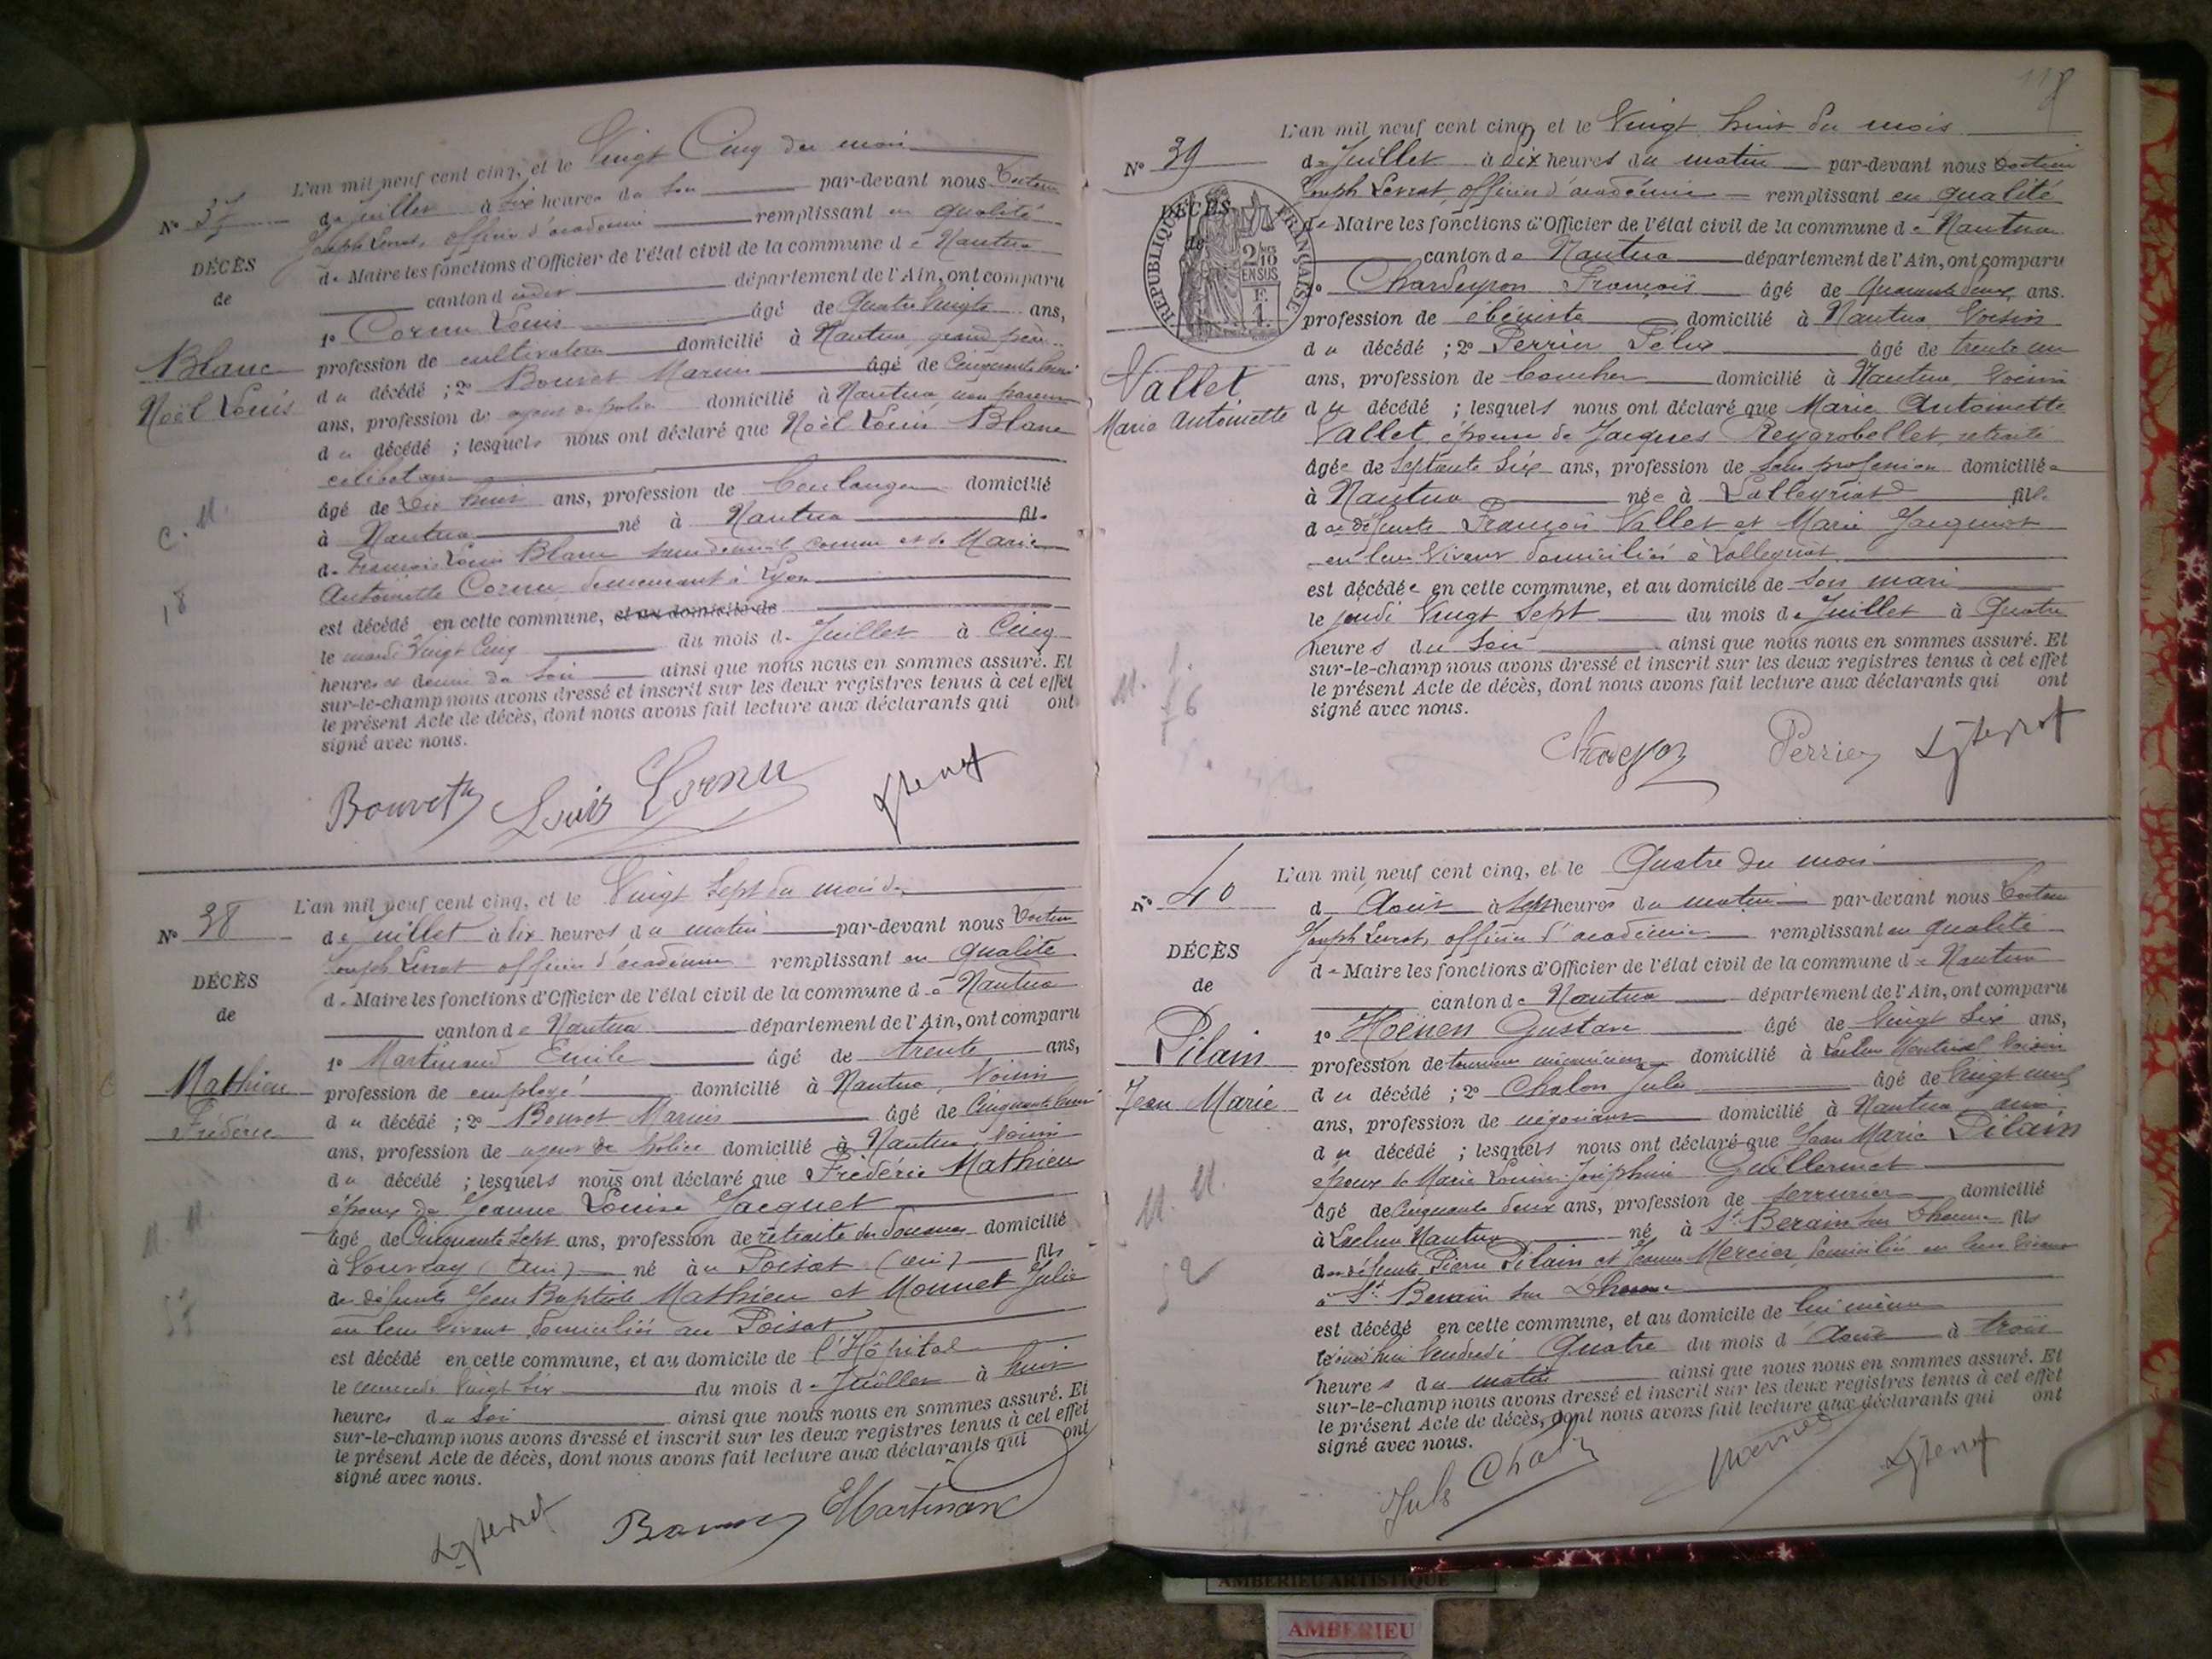 L'an mil neuf cent cinq, et le Vingt Cinq du mois
N° 37
de Juillet à Six heures du Soir par-devant nous Docteur
Joseph Levrat, officier d'académie remplissant en qualité
DÉCÈS
de Maire les fonctions d'Officier de l'état civil de la commune de Nantua
de
canton dudit département de l'Ain, ont comparu
1° Cornu Louis âgé de Quatre Vingts ans,
Blanc
profession de cultivateur domicilié à Nantua grand père
Noël Louis
du décédé ; 2° Bouvet Marius âgé de Cinquante huit
ans, profession de agent de police domicilié à Nantua, non parent
du décédé ; lesquels nous ont déclaré que Noël Louis Blanc
célibataire
âgé de Dix huit ans, profession de boulanger domicilié
C. M.
à Nantua né à Nantua fils
de François Louis Blanc sans domicile connu et de Marie
18
Antoinette Cornu demeurant à Lyon
est décédé en cette commune, et au domicile de
le mardi Vingt Cinq du mois de Juillet à Cinq
heures et demie du Soir ainsi que nous nous en sommes assuré. Et
sur-le-champ nous avons dressé et inscrit sur les deux registres tenus à cet effet
le présent Acte de décès, dont nous avons fait lecture aux déclarants qui ont
signé avec nous.
Bouvet Louis Cornu
L'an mil neuf cent cinq, et le Vingt Sept du mois de
N° 38
de Juillet à dix heures du matin par-devant nous Docteur
Joseph Levrat officier d'académie remplissant en qualité
DÉCÈS
de Maire les fonctions d'Officier de l'état civil de la commune de Nantua
de
canton de Nantua département de l'Ain, ont comparu
1° Martinand Emile âgé de trente ans,
Mathieu
profession de employé domicilié à Nantua, Voisin
Frédéric
du décédé ; 2° Bouvet Marius âgé de Cinquante huit
ans, profession de agent de police domicilié à Nantua, Voisin
du décédé ; lesquels nous ont déclaré que Frédéric Mathieu
époux de Jeanne Louise Jacquet
M. M.
âgé de Cinquante Sept ans, profession de retraité des douanes domicilié
à Vouvray (Ain) né au Poizat (Ain) fils
de défunts Jean Baptiste Mathieu et Monnet Julie
en leur vivant domiciliés au Poizat
est décédé en cette commune, et au domicile de l'Hôpital
le mercredi Vingt Six du mois de Juillet à huit
heures du Soir ainsi que nous nous en sommes assuré. Et
sur-le-champ nous avons dressé et inscrit sur les deux registres tenus à cet effet
le présent Acte de décès, dont nous avons fait lecture aux déclarants qui ont
signé avec nous.
EMartinand
118
L'an mil neuf cent cinq, et le Vingt huit du mois
N° 39
de Juillet à dix heures du matin par-devant nous Docteur
Joseph Levrat, officier d'académie remplissant en qualité
DÉCÈS
de Maire les fonctions d'Officier de l'état civil de la commune de Nantua
de
canton de Nantua département de l'Ain, ont comparu
RÉPUBLIQUE FRANÇAISE
2/10
EN SUS
1° Chardeyron François âgé de Quarante deux ans.
profession de ébéniste domicilié à Nantua Voisin
du décédé ; 2° Perrier Félix âgé de trente un
Vallet
ans, profession de boucher domicilié à Nantua, Voisin
Marie Antoinette
du décédé ; lesquels nous ont déclaré que Marie Antoinette
Vallet, épouse de Jacques Reygrobellet, retraité
âgée de Septante Six ans, profession de Sans profession domiciliée
à Nantua née à Lalleyriat fille
de défunts François Vallet et Marie Jacquinot
en leur Vivant domiciliés à Lalleyriat
est décédée en cette commune, et au domicile de Son mari
le jeudi Vingt Sept du mois de Juillet à Quatre
heures du Soir ainsi que nous nous en sommes assuré. Et
sur-le-champ nous avons dressé et inscrit sur les deux registres tenus à cet effet
le présent Acte de décès, dont nous avons fait lecture aux déclarants qui ont
signé avec nous.
Perrier
L'an mil neuf cent cinq, et le Quatre du mois
N° 40
d'Août à Sept heures du matin par-devant nous Docteur
Joseph Levrat, officier d'académie remplissant en qualité
DÉCÈS
de Maire les fonctions d'Officier de l'état civil de la commune de Nantua
de
canton de Nantua département de l'Ain, ont comparu
1° Hoënen Gustave âgé de Vingt Six ans,
Pilain
profession de tourneur mécanicien domicilié à Voisin
Jean Marie
du décédé ; 2° Chalon Jules âgé de Vingt neuf
ans, profession de négociant domicilié à Nantua ami
du décédé ; lesquels nous ont déclaré que Jean Marie Pilain
époux de Marie Louise Joséphine Guillermet
M. M.
âgé de Cinquante deux ans, profession de serrurier domicilié
52
à Nantua né à St Berain sur Dheune fils
de défunts Pierre Pilain et Jeanne Mercier, domiciliés en leur vivant
à St Berain sur Dheune
est décédé en cette commune, et au domicile de lui même
Vendredi Quatre du mois d'Août à trois
heures du matin ainsi que nous nous en sommes assuré. Et
sur-le-champ nous avons dressé et inscrit sur les deux registres tenus à cet effet
le présent Acte de décès, dont nous avons fait lecture aux déclarants qui ont
signé avec nous.
Jules Chalon
AMBERIEU ARTISTIQUE
AMBERIEU